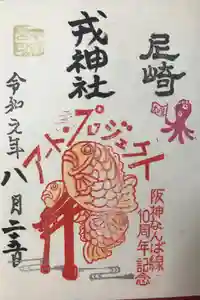 尼崎
戎神社
アートプロジェクト
阪神なんば線
10周年記念
令和元年
八月二十五日